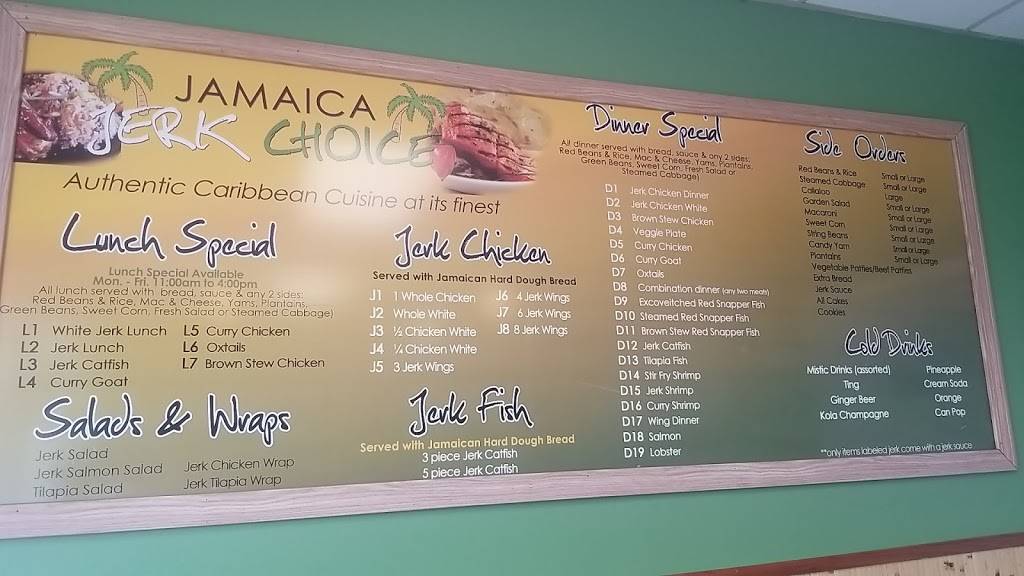 JAMAICA
JERK CHOICE
Authentic Caribbean Cuisine at its finest
Lunch Special
Lunch Special Available
Mon. - Fri. 11:00am to 4:00pm
All lunch served with bread, sauce & any 2 sides:
Red Beans & Rice, Mac & Cheese, Yams, Plantains,
Green Beans, Sweet Corn, Fresh Salad or Steamed Cabbage)
L1 White Jerk Lunch
L2 Jerk Lunch
L3 Jerk Catfish
L4 Curry Goat
L5 Curry Chicken
L6 Oxtails
L7 Brown Stew Chicken
Salads & Wraps
Jerk Salad
Jerk Salmon Salad
Tilapia Salad
Jerk Chicken Wrap
Jerk Tilapia Wrap
Jerk Chicken
Served with Jamaican Hard Dough Bread
J1 1 Whole Chicken
J2 Whole White
J3 ½ Chicken White
J4 ¼ Chicken White
J5 3 Jerk Wings
J6 4 Jerk Wings
J7 6 Jerk Wings
J8 8 Jerk Wings
Jerk Fish
Served with Jamaican Hard Dough Bread
3 piece Jerk Catfish
5 piece Jerk Catfish
Dinner Special
All dinner served with bread, sauce & any 2 sides:
Red Beans & Rice, Mac & Cheese, Yams, Plantains,
Green Beans, Sweet Corn, Fresh Salad or
Steamed Cabbage)
D1 Jerk Chicken Dinner
D2 Jerk Chicken White
D3 Brown Stew Chicken
D4 Veggie Plate
D5 Curry Chicken
D6 Curry Goat
D7 Oxtails
D8 Combination dinner (any two meats)
D9 Excoveitched Red Snapper Fish
D10 Steamed Red Snapper Fish
D11 Brown Stew Red Snapper Fish
D12 Jerk Catfish
D13 Tilapia Fish
D14 Stir Fry Shrimp
D15 Jerk Shrimp
D16 Curry Shrimp
D17 Wing Dinner
D18 Salmon
D19 Lobster
Side Orders
Red Beans & Rice
Steamed Cabbage
Callaloo
Garden Salad
Macaroni
Sweet Corn
String Beans
Candy Yam
Plantains
Vegetable Patties/Beef Patties
Extra Bread
Jerk Sauce
All Cakes
Cookies
Small or Large
Small or Large
Large
Small or Large
Small or Large
Small or Large
Small or Large
Small or Large
Small or Large
Cold Drinks
Mistic Drinks (assorted)
Ting
Ginger Beer
Kola Champagne
Pineapple
Cream Soda
Orange
Can Pop
**only items labeled jerk come with a jerk sauce